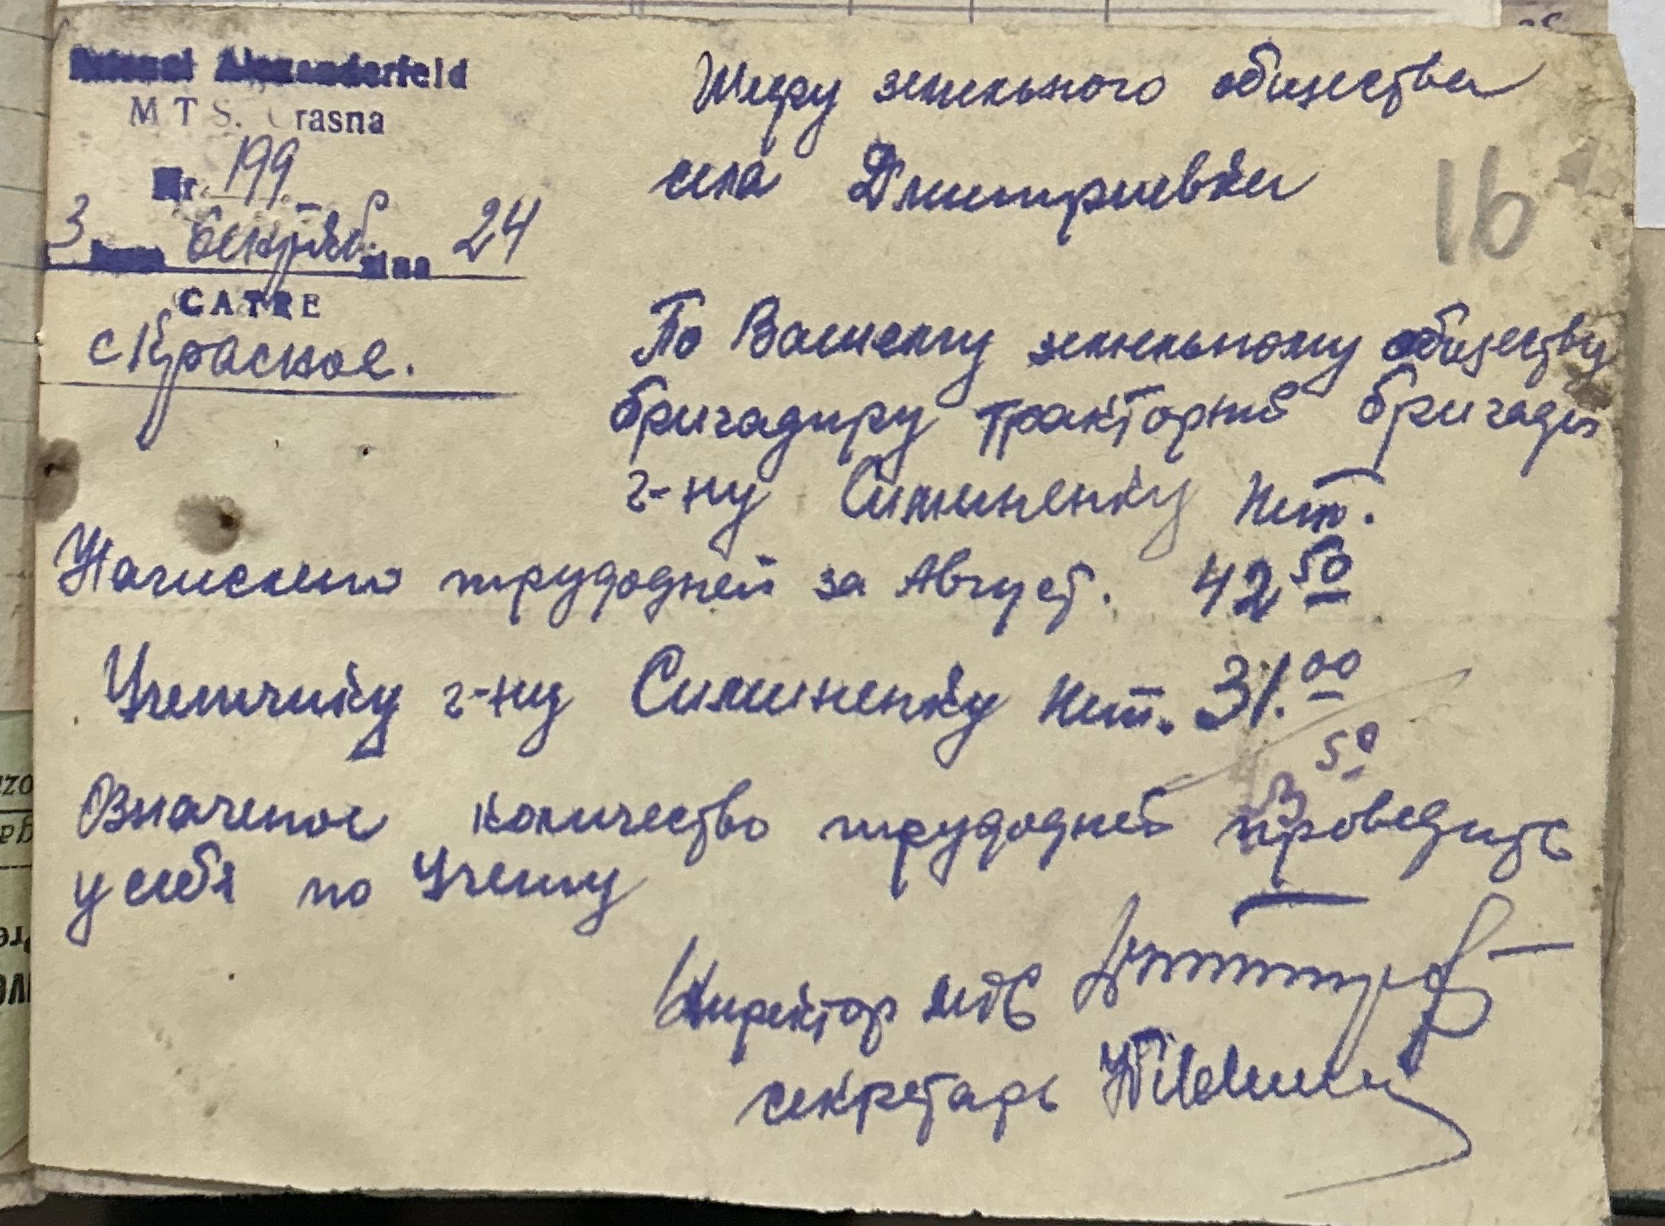 Alexanderfeld
M T S. Crasna
Nr. 199
3 Октяб. 24
CATRE
с Красное.
Шефу земельного общества
села Дмитриевки
16
По Вашему земельному обществу
бригадиру тракторной бригады
г-ну Сименненку
Начислено трудодней за Август. 42 50
Учетчику г-ну Сименненку 31.00
50
Значеное количество трудодней проведить
у себя по Учету
Директор МТС
секретарь